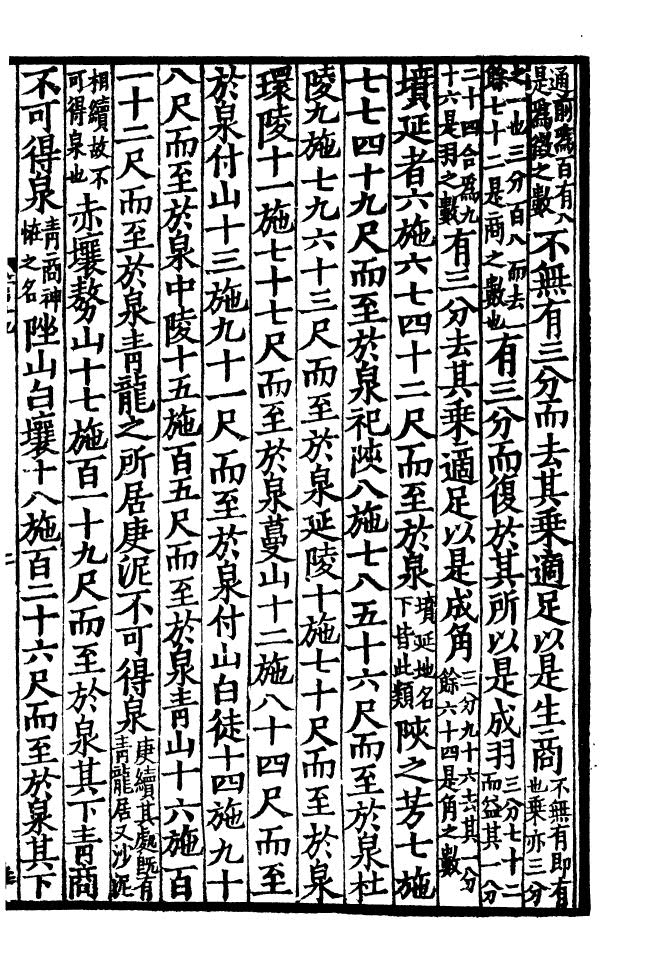 通前爲百有八是爲徵之數不無有三分而去其乘適足以是生商不無有即有也乘亦三分
之一也三分百八而去一餘七十二是商之數也有三分而復於其所以是成羽三分七十二而益其一分
二十四合爲九十六是羽之數有三分去其乘適足以是成角三分九十六去其一分餘六十四是角之數
墳延者六施六七四十二尺而至於泉墳延地名下皆此類陝之芳七施
七七四十九尺而至於泉祀陝八施七八五十六尺而至於泉杜
陵九施七九六十三尺而至於泉延陵十施七十尺而至於泉
環陵十一施七十七尺而至於泉蔓山十二施八十四尺而至
於泉付山十三施九十一尺而至於泉付山白徒十四施九十
八尺而至於泉中陵十五施百五尺而至於泉青山十六施百
一十二尺而至於泉青龍之所居庚泥不可得泉庚續其處既有青龍居又沙泥
相續故不可得泉也赤壤山十七施百一十九尺而至於泉其下青商
不可得泉青商神怪之名山白壤十八施百二十六尺而至於泉其下